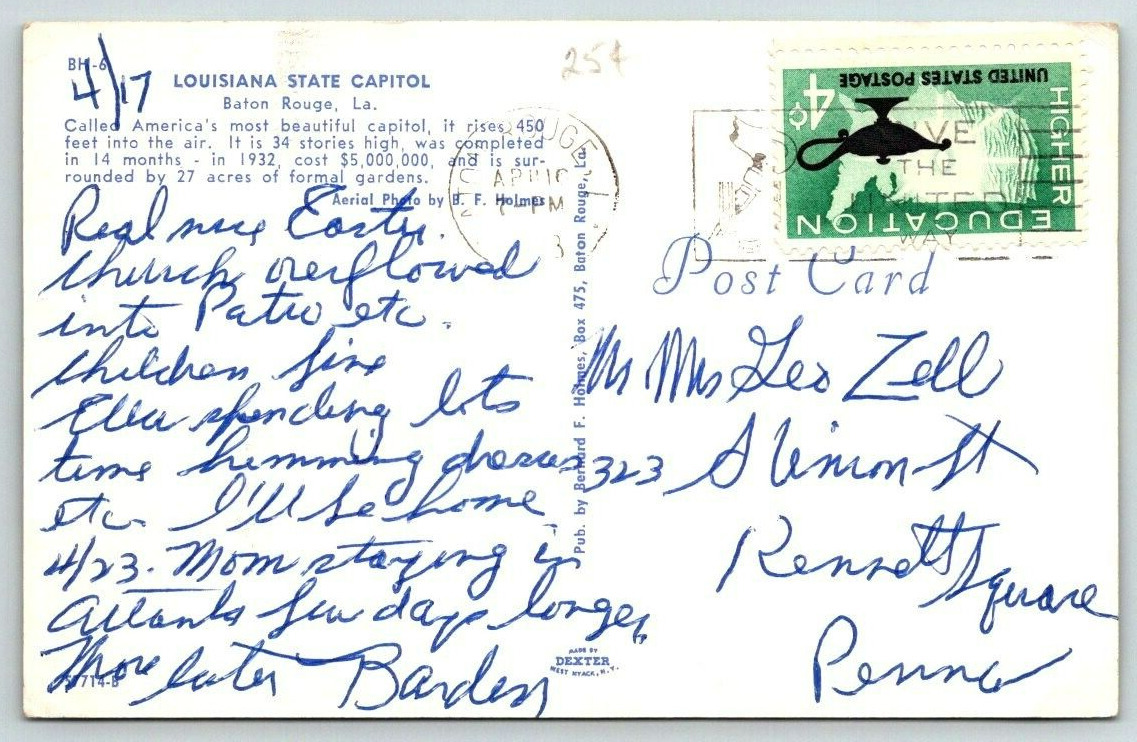 25¢
BH-6
4/17
LOUISIANA STATE CAPITOL
Baton Rouge, La.
Called America's most beautiful capitol, it rises 450
feet into the air. It is 34 stories high, was completed
in 14 months - in 1932, cost $5,000,000, and is sur-
rounded by 27 acres of formal gardens.
Aerial Photo by B. F. Holmes
Real nice Easter.
Church overflowed
into Patio etc.
Children fine
Ella spending lots
time hemming dresses
etc. I'll be home
4/23. Mom staying in
Atlanta few days longer
More later Barden
714-B
Pub. by Bernard F. Holmes, Box 475, Baton Rouge, La.
MADE BY
DEXTER
WEST NYACK, N.Y.
ROUGE
PM
THE
WAY
UNITED STATES POSTAGE
4¢
HIGHER
EDUCATION
Post Card
Mr Mrs Geo Zell
323 S Union St
Kennett Square
Penna